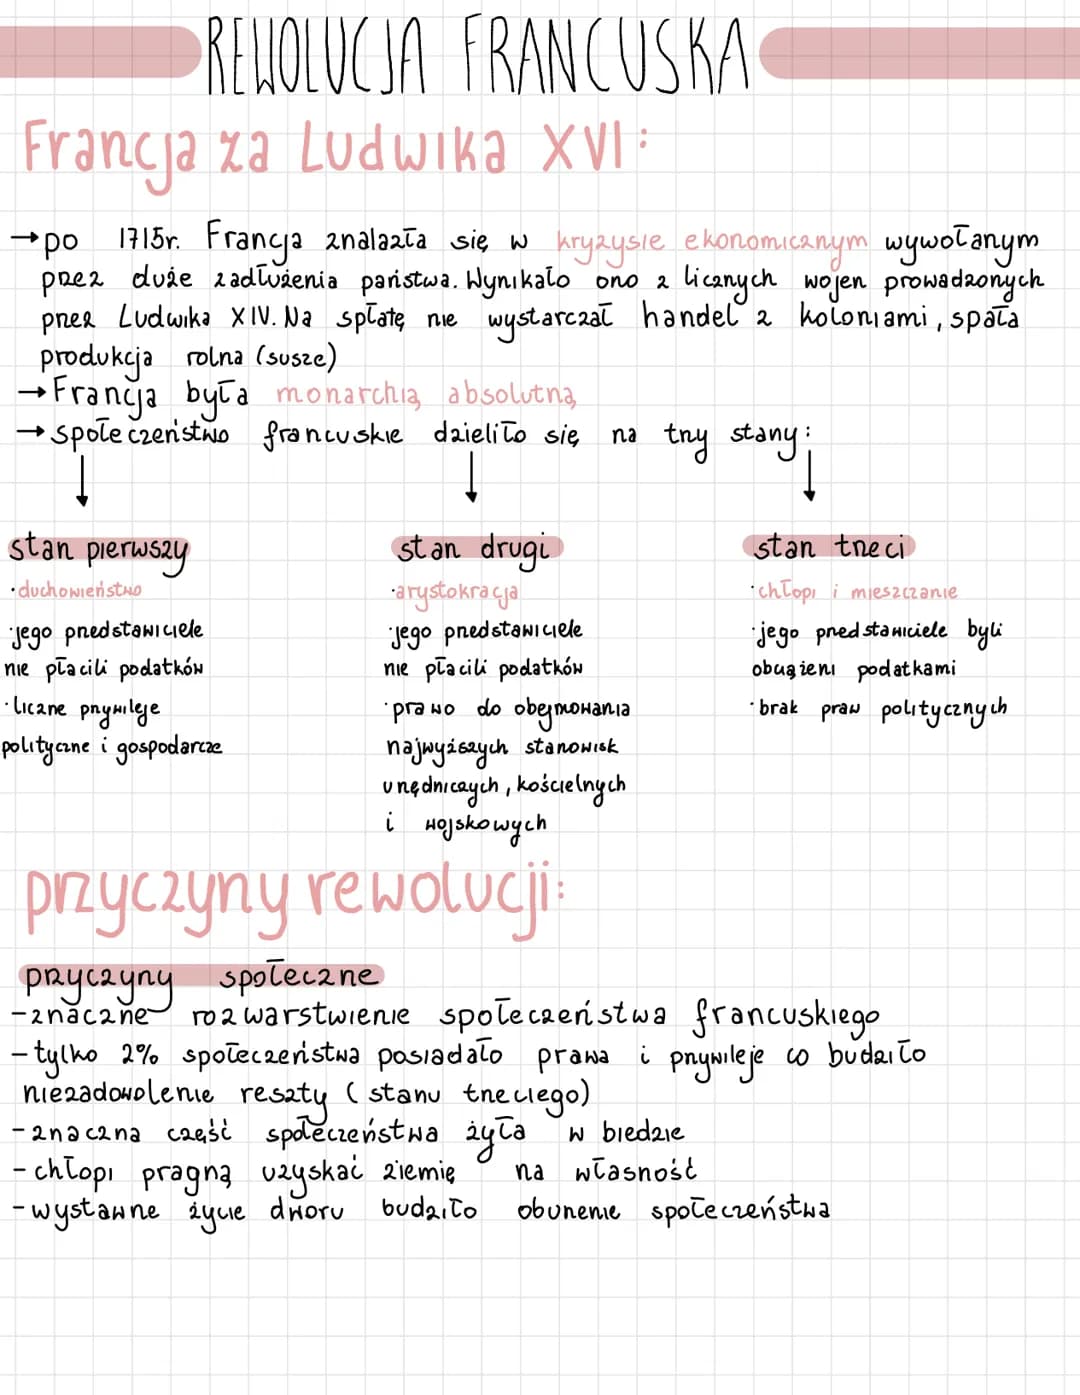 REWOLUCJA FRANCUSKA
Francja za Ludwika XVI:
→ po 1715r. Francja znalazła się w kryzysie ekonomicznym wywołanym
przez duże zadłużenia państwa. Wynikało ono z licznych wojen prowadzonych
przez Ludwika XIV. Na spłatę nie wystarczał handel z koloniami, spała
produkcja rolna (susze)
→ Francja była monarchią absolutną
→ społeczeństwo francuskie dzieliło się na trzy stany:
stan pierwszy
·duchowieństwo
·jego przedstawiciele
nie płacili podatków
·liczne przywileje
polityczne i gospodarcze
stan drugi
·arystokracja
·jego przedstawiciele
nie płacili podatków
·prawo do obejmowania
najwyższych stanowisk
urzędniczych, kościelnych
i wojskowych
stan trzeci
·chłopi i mieszczanie
·jego przedstawiciele byli
obciążeni podatkami
·brak praw politycznych
przyczyny rewolucji:
przyczyny społeczne
-znaczne rozwarstwienie społeczeństwa francuskiego
-tylko 2% społeczeństwa posiadało prawa i przywileje co budziło
niezadowolenie reszty (stanu trzeciego)
-znaczna część społeczeństwa żyła w biedzie
-chłopi pragną uzyskać ziemię na własność
-wystawne życie dworu budziło oburzenie społeczeństwa